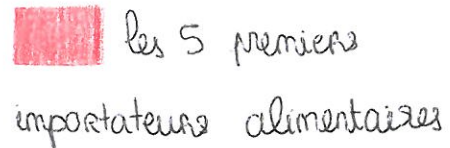 les 5 premiers
importateurs alimentaires